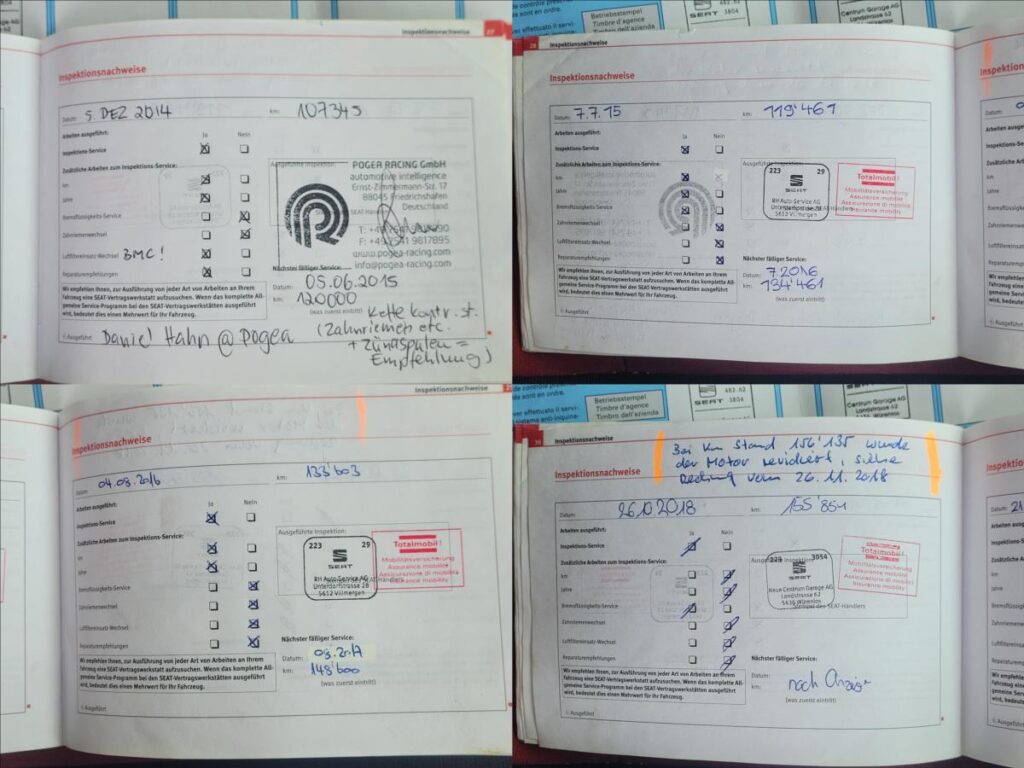 Inspektionsnachweise 27
Inspektionsnachweise
Datum: 5. DEZ 2014 km: 107345
Arbeiten ausgeführt: Ja Nein
Inspektions-Service
Zusätzliche Arbeiten zum Inspektions-Service: Ausgeführte Inspektion:
km
Jahre
Bremsflüssigkeits-Service
Zahnriemenwechsel
Luftfiltereinsatz-Wechsel BMC!
Reparaturempfehlungen
POGEA RACING GmbH
automotive intelligence
Ernst-Zimmermann-Str. 17
88045 Friedrichshafen
Deutschland
F: +49 7541 9817895
www.pogea-racing.com
info@pogea-racing.com
Nächster fälliger Service:
Datum: 05.06.2015
km: 120000
(was zuerst eintritt)
Wir empfehlen Ihnen, zur Ausführung von jeder Art von Arbeiten an Ihrem
Fahrzeug eine SEAT-Vertragswerkstatt aufzusuchen. Wenn das komplette All-
gemeine Service-Programm bei den SEAT-Vertragswerkstätten ausgeführt
wird, bedeutet dies einen Mehrwert für Ihr Fahrzeug.
Kette kontr. st.
(Zahnriemen etc.
+ Zündspulen =
Empfehlung)
Ausgeführt Daniel Hahn @ Pogea
Betriebsstempel
Timbre d'agence
Timbro dell'azienda
SEAT 3804
Centrum Garage AG
Landstrasse 62
28 Inspektionsnachweise
Inspektionsnachweise
Datum: 7.7.15 km: 119'461
Arbeiten ausgeführt: Ja Nein
Inspektions-Service
Zusätzliche Arbeiten zum Inspektions-Service: Ausgeführte Inspektion:
km
Jahre
Bremsflüssigkeits-Service
Zahnriemenwechsel
Luftfiltereinsatz-Wechsel
Reparaturempfehlungen
223 29
SEAT
RH Auto-Service AG
Unterdorfstrasse 28
5612 Villmergen
Totalmobil!
Mobilitätsversicherung
Assurance mobilité
Assicurazione di mobilità
Insurance mobility
Nächster fälliger Service:
Datum: 7.2016
km: 134'461
(was zuerst eintritt)
Wir empfehlen Ihnen, zur Ausführung von jeder Art von Arbeiten an Ihrem
Fahrzeug eine SEAT-Vertragswerkstatt aufzusuchen. Wenn das komplette All-
gemeine Service-Programm bei den SEAT-Vertragswerkstätten ausgeführt
wird, bedeutet dies einen Mehrwert für Ihr Fahrzeug.
Ausgeführt
Inspektionsnachweise
Inspektionsnachweise
Datum: 04.03.2016 km: 133'603
Arbeiten ausgeführt: Ja Nein
Inspektions-Service
Zusätzliche Arbeiten zum Inspektions-Service: Ausgeführte Inspektion:
km
Jahre
Bremsflüssigkeits-Service
Zahnriemenwechsel
Luftfiltereinsatz-Wechsel
Reparaturempfehlungen
223 29
SEAT
RH Auto-Service AG
Unterdorfstrasse 28
5612 Villmergen
Totalmobil!
Mobilitätsversicherung
Assurance mobilité
Assicurazione di mobilità
Insurance mobility
Nächster fälliger Service:
Datum: 03.2017
km: 148'600
(was zuerst eintritt)
Wir empfehlen Ihnen, zur Ausführung von jeder Art von Arbeiten an Ihrem
Fahrzeug eine SEAT-Vertragswerkstatt aufzusuchen. Wenn das komplette All-
gemeine Service-Programm bei den SEAT-Vertragswerkstätten ausgeführt
wird, bedeutet dies einen Mehrwert für Ihr Fahrzeug.
Ausgeführt
Betriebsstempel
Timbre d'agence
Timbro dell'azienda
SEAT 3804
Centrum Garage AG
Landstrasse 62
30 Inspektionsnachweise
Bei Km Stand 156'135 wurde
der Motor revidiert, siehe
Rechnung vom 26.11.2018
Inspektionsnachweise
Datum: 26.10.2018 km: 155'854
Arbeiten ausgeführt: Ja Nein
Inspektions-Service
Zusätzliche Arbeiten zum Inspektions-Service:
km
Jahre
Bremsflüssigkeits-Service
Zahnriemenwechsel
Luftfiltereinsatz-Wechsel
Reparaturempfehlungen
3054
SEAT
Neue Centrum Garage AG
Landstrasse 62
5436 Würenlos
Stempel des SEAT-Händlers
Totalmobil!
Mobilitätsversicherung
Assurance mobilité
Assicurazione di mobilità
Insurance mobility
Nächster fälliger Service:
Datum:
km: nach Anzeige
(was zuerst eintritt)
Wir empfehlen Ihnen, zur Ausführung von jeder Art von Arbeiten an Ihrem
Fahrzeug eine SEAT-Vertragswerkstatt aufzusuchen. Wenn das komplette All-
gemeine Service-Programm bei den SEAT-Vertragswerkstätten ausgeführt
wird, bedeutet dies einen Mehrwert für Ihr Fahrzeug.
Ausgeführt